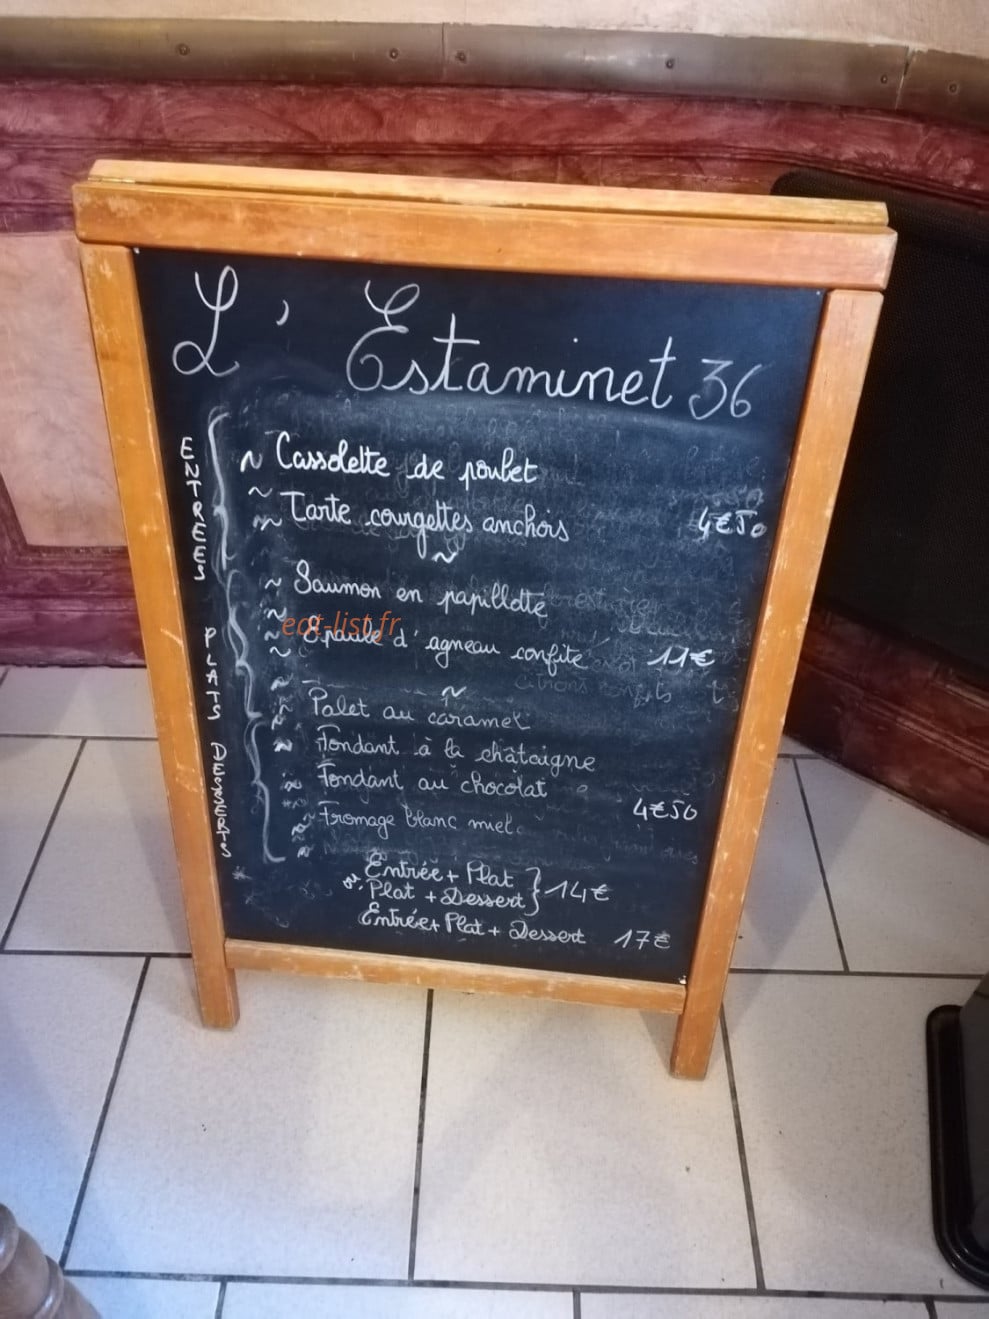 L'Estaminet 36
ENTREES
~ Cassolette de poulet
~
~ Tarte courgettes anchois 4€50
~
PLATS
~ Saumon en papillote
eat-list.fr
~ Epaule d'agneau confite 11€
~
DESSERTS
Palet au caramel
~ Fondant à la châtaigne
~ Fondant au chocolat
4€50
~ Fromage blanc miel
Entrée + Plat
ou Plat + Dessert } 14€
Entrée + Plat + Dessert 17€